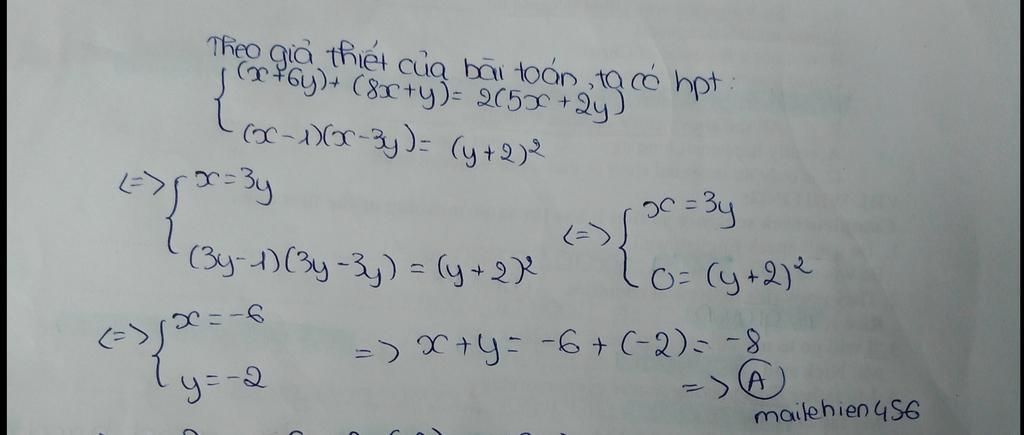 Theo giả thiết của bài toán, ta có hpt:
{ (x+6y)+(8x+y)=2(5x+2y)
(x-1)(x-3y)=(y+2)²
<=> { x=3y
(3y-1)(3y-3y)=(y+2)²
<=> { x=3y
0=(y+2)²
<=> { x=-6
y=-2
=> x+y=-6+(-2)=-8
=> A
mailehien456